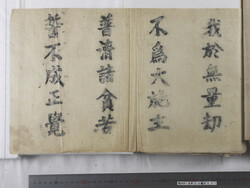 我於無量劫
不為大施主
普濟諸貧苦
誓不成正覺